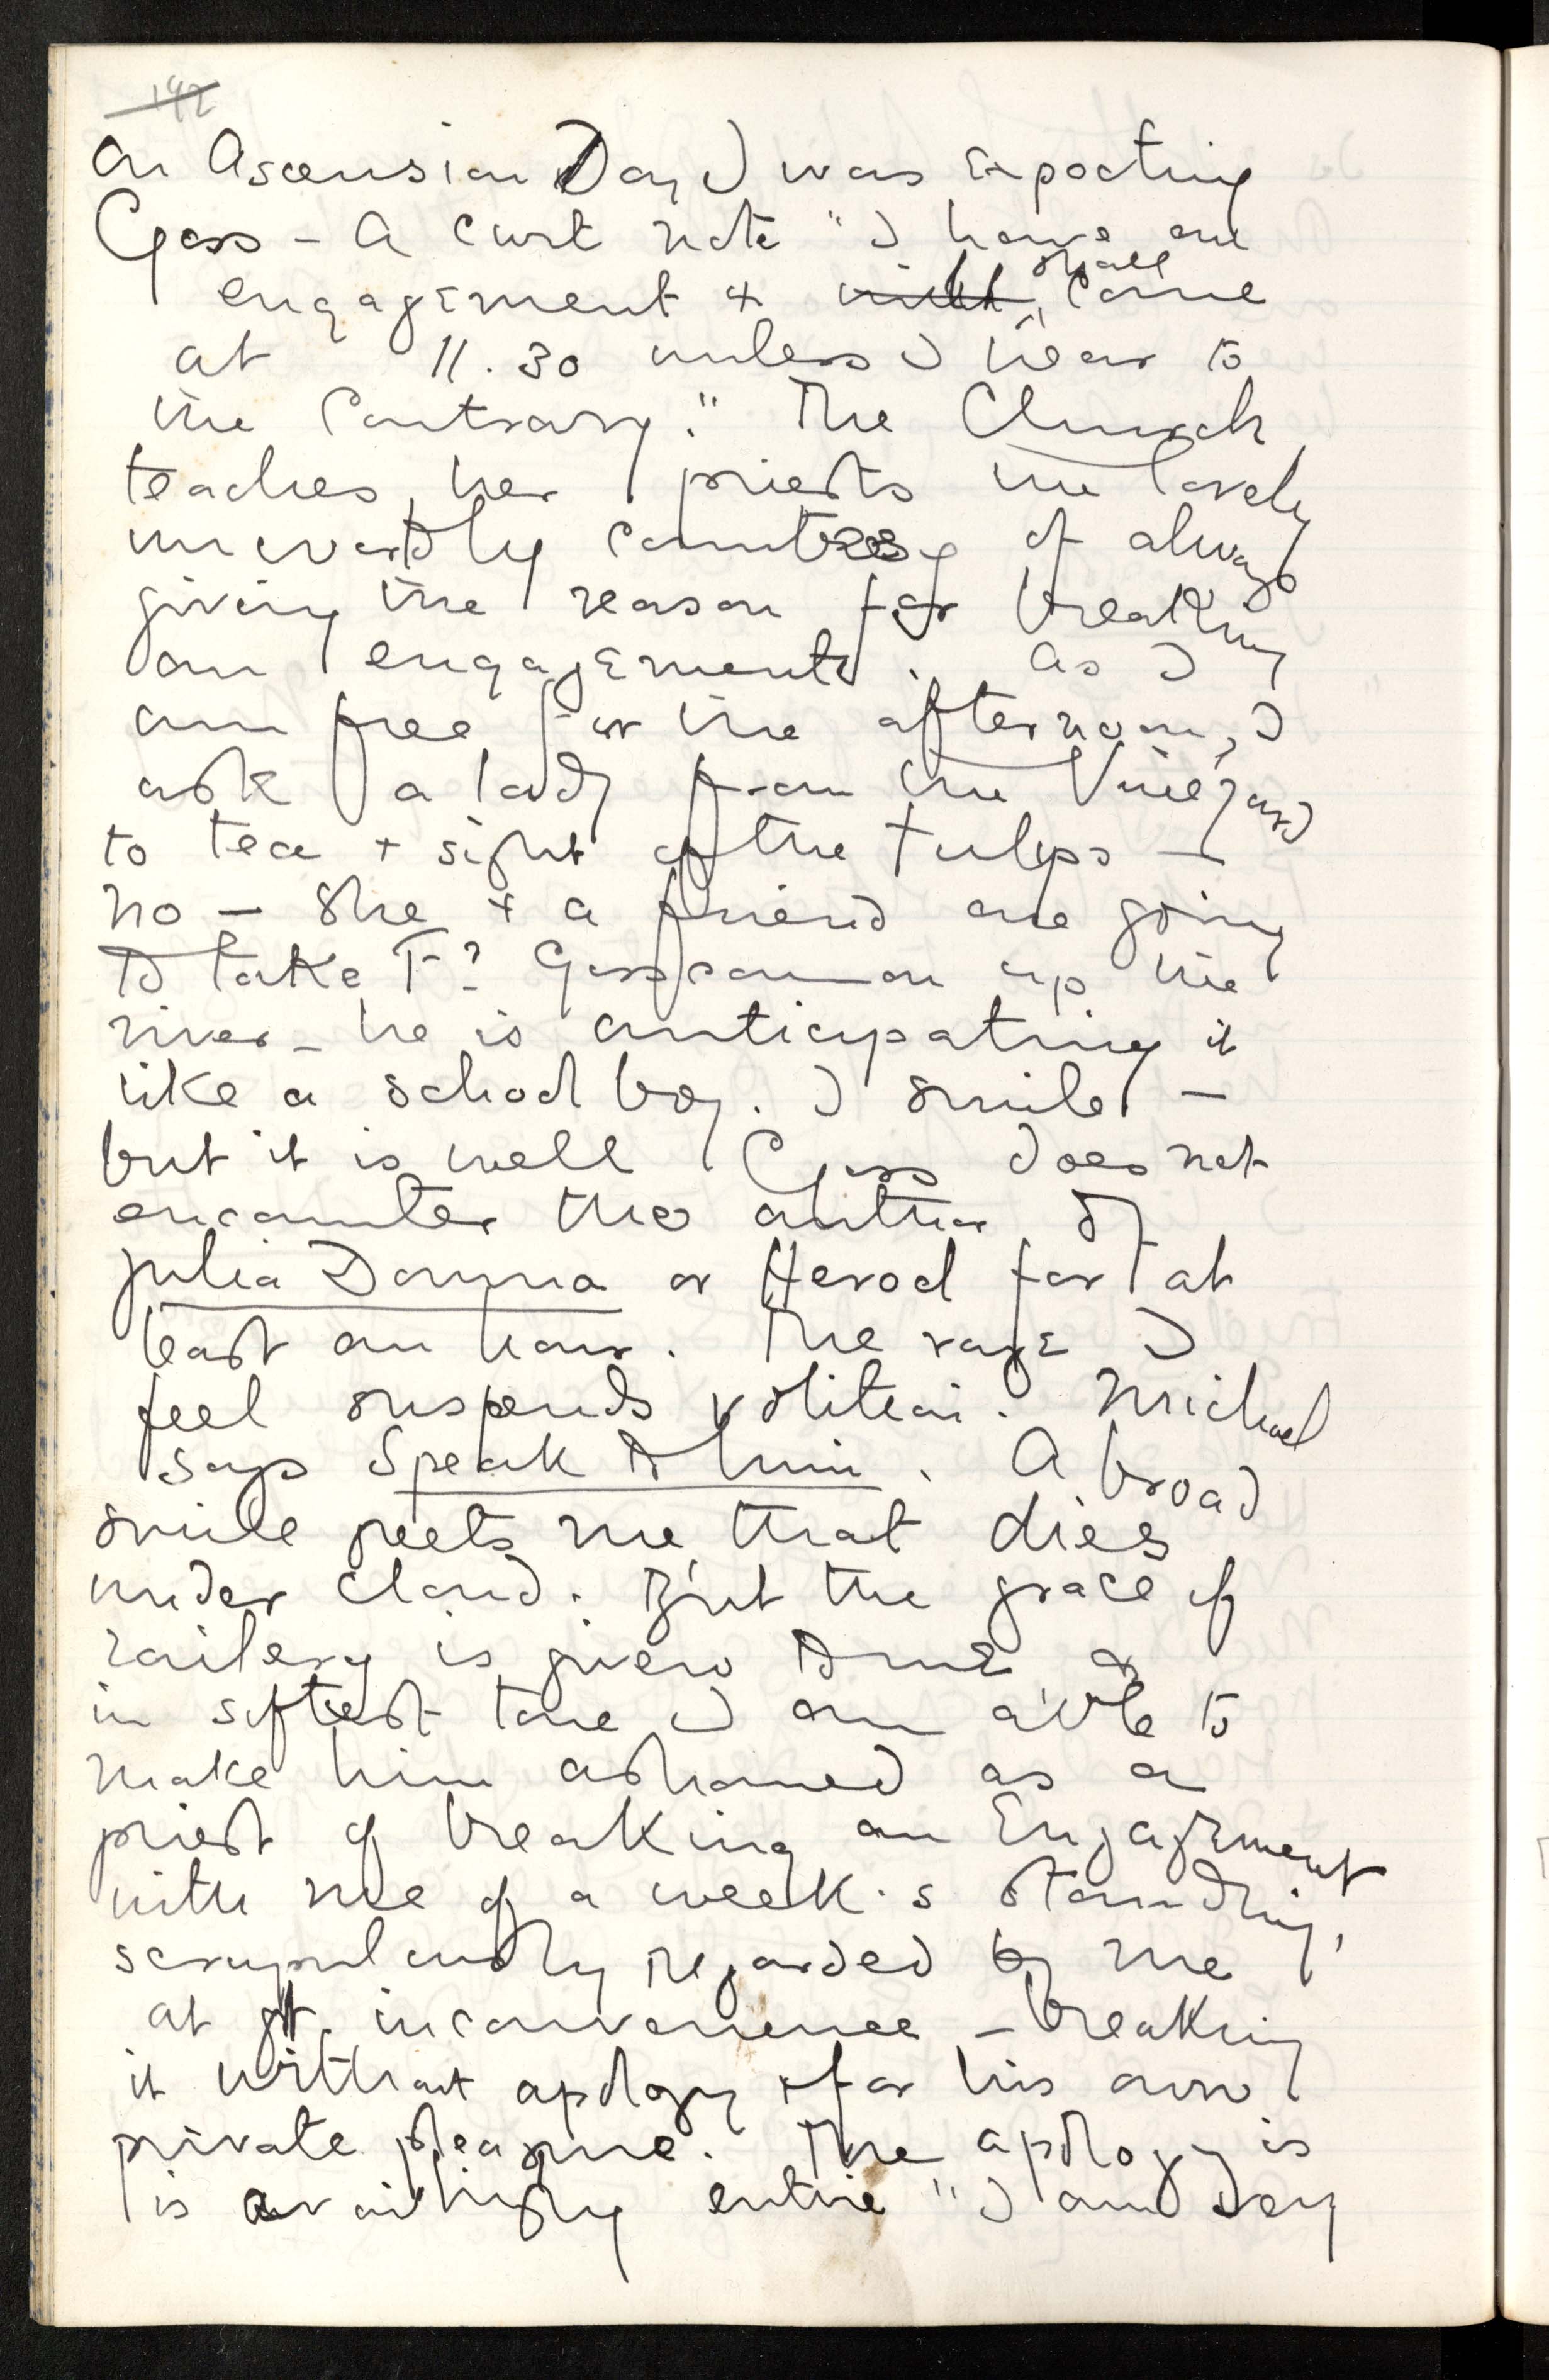 142
On Ascension Day I was expecting
Goss - A curt note "I have an
engagement & will shall come
at 11.30 unless I hear to
the Contrary." The Church
teaches her priests the lovely
unworldly courtesy of always
giving the reason for breaking
an engagement. As I
am free for the afternoon, I
ask a lady from the Vineyard
to tea & sight of the tulips —
no — She & a friend are going
to take Fr Goss up the
river - he is anticipating it
like a school boy. I smile —
but it is well Goss does not
encounter the author of
Julia Domna or Herod for at
least an hour. The rage I
feel suspends volition. Michael
says Speak to him. A broad
smile greets me that dies
under cloud. But the grace of
raillery is given to me &
in softest tone I am able to
make him ashamed as a
priest of breaking an Engagement
with me of a week's standing,
scrupulously regarded by me
at gt. inconvenience - breaking
it without apology & for his own
private pleasure. The apology is
is entire "I am very